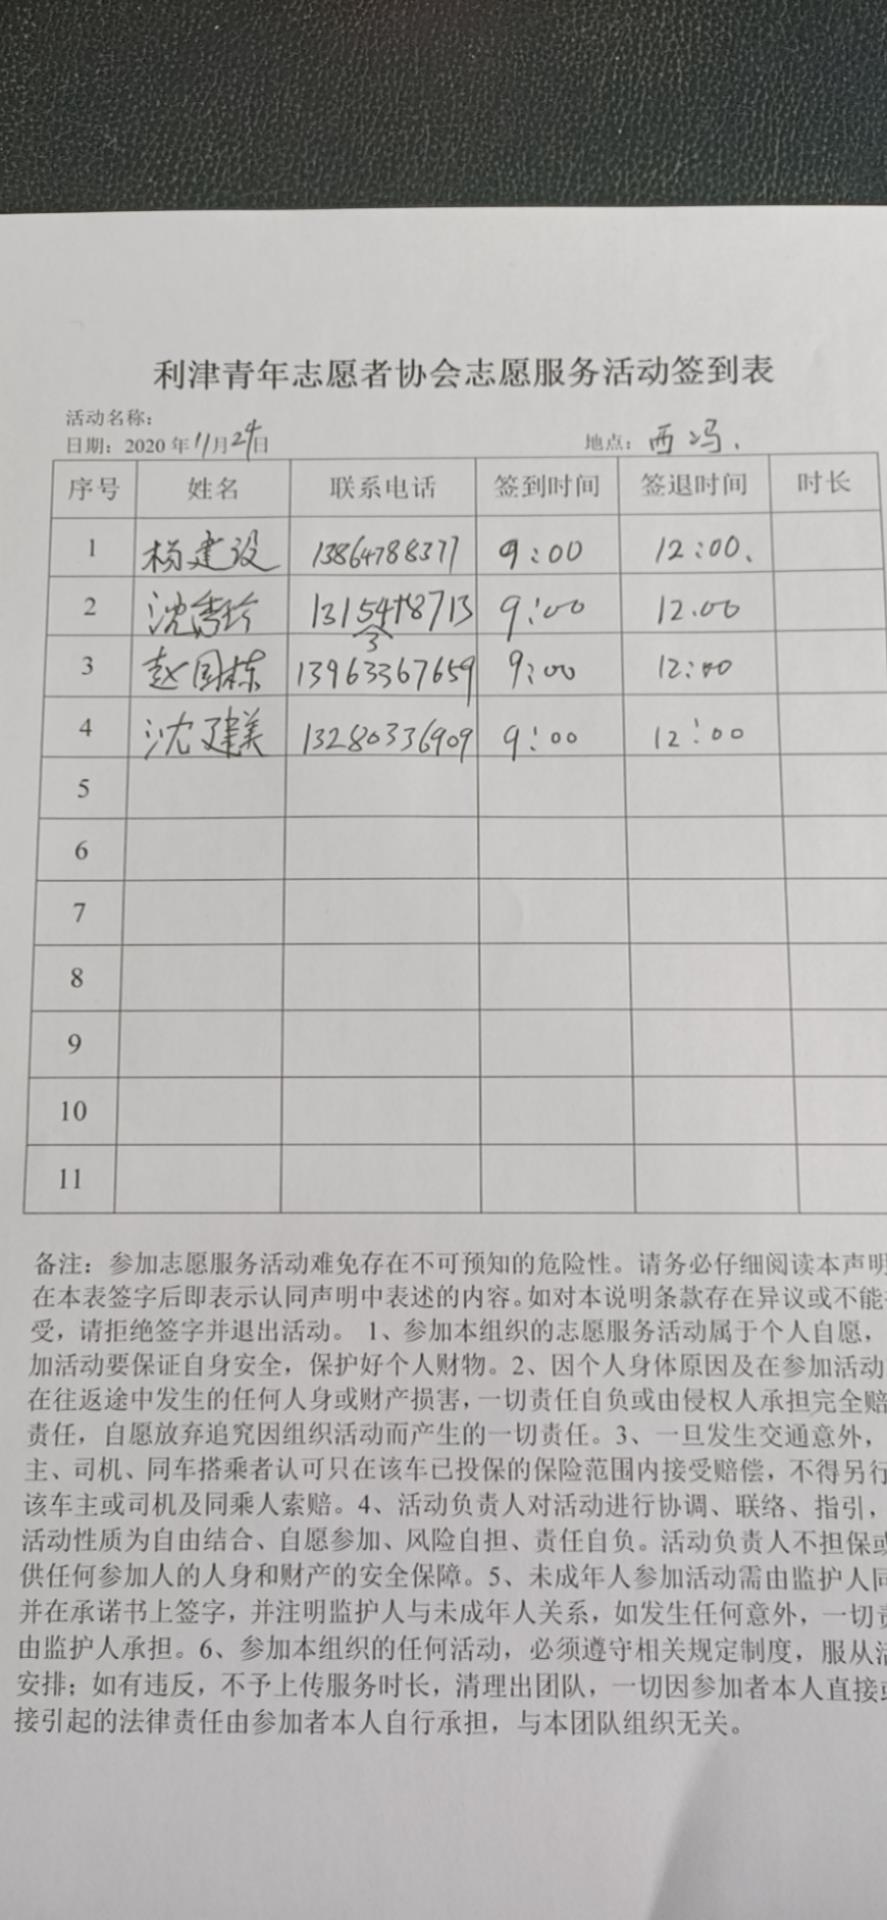 利津青年志愿者协会志愿服务活动签到表
活动名称：
日期：2020年11月29日 地点：西冯.
序号 姓名 联系电话 签到时间 签退时间 时长
1 杨建设 13864788377 9:00 12:00.
2 沈秀珍 9:00 12.00
3 赵国栋 13963367659 9:00 12:00
4 沈建美 13280336909 9:00 12:00
5
6
7
8
9
10
11
备注：参加志愿服务活动难免存在不可预知的危险性。请务必仔细阅读本声明
在本表签字后即表示认同声明中表述的内容。如对本说明条款存在异议或不能
受，请拒绝签字并退出活动。 1、参加本组织的志愿服务活动属于个人自愿，
加活动要保证自身安全，保护好个人财物。2、因个人身体原因及在参加活动
在往返途中发生的任何人身或财产损害，一切责任自负或由侵权人承担完全赔
责任，自愿放弃追究因组织活动而产生的一切责任。3、一旦发生交通意外，
主、司机、同车搭乘者认可只在该车已投保的保险范围内接受赔偿，不得另行
该车主或司机及同乘人索赔。4、活动负责人对活动进行协调、联络、指引，
活动性质为自由结合、自愿参加、风险自担、责任自负。活动负责人不担保或
供任何参加人的人身和财产的安全保障。5、未成年人参加活动需由监护人同
并在承诺书上签字，并注明监护人与未成年人关系，如发生任何意外，一切责
由监护人承担。6、参加本组织的任何活动，必须遵守相关规定制度，服从活
安排；如有违反，不予上传服务时长，清理出团队，一切因参加者本人直接或
接引起的法律责任由参加者本人自行承担，与本团队组织无关。